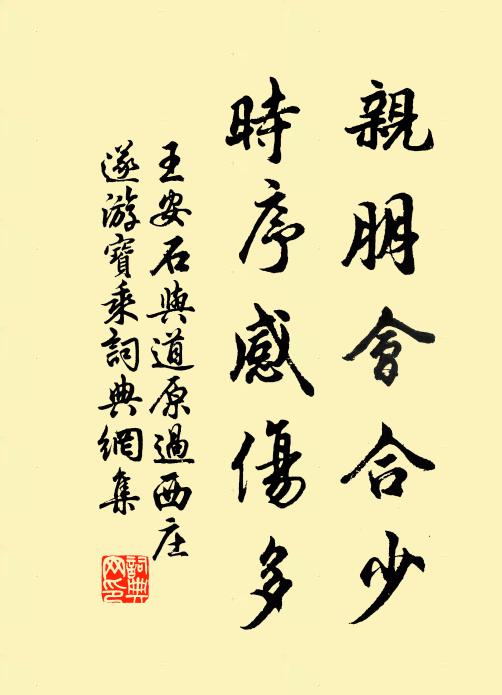 親朋會合少
時序感傷多
王安石與道原過西庄
遂游寶乘詞典網集
詞典网印